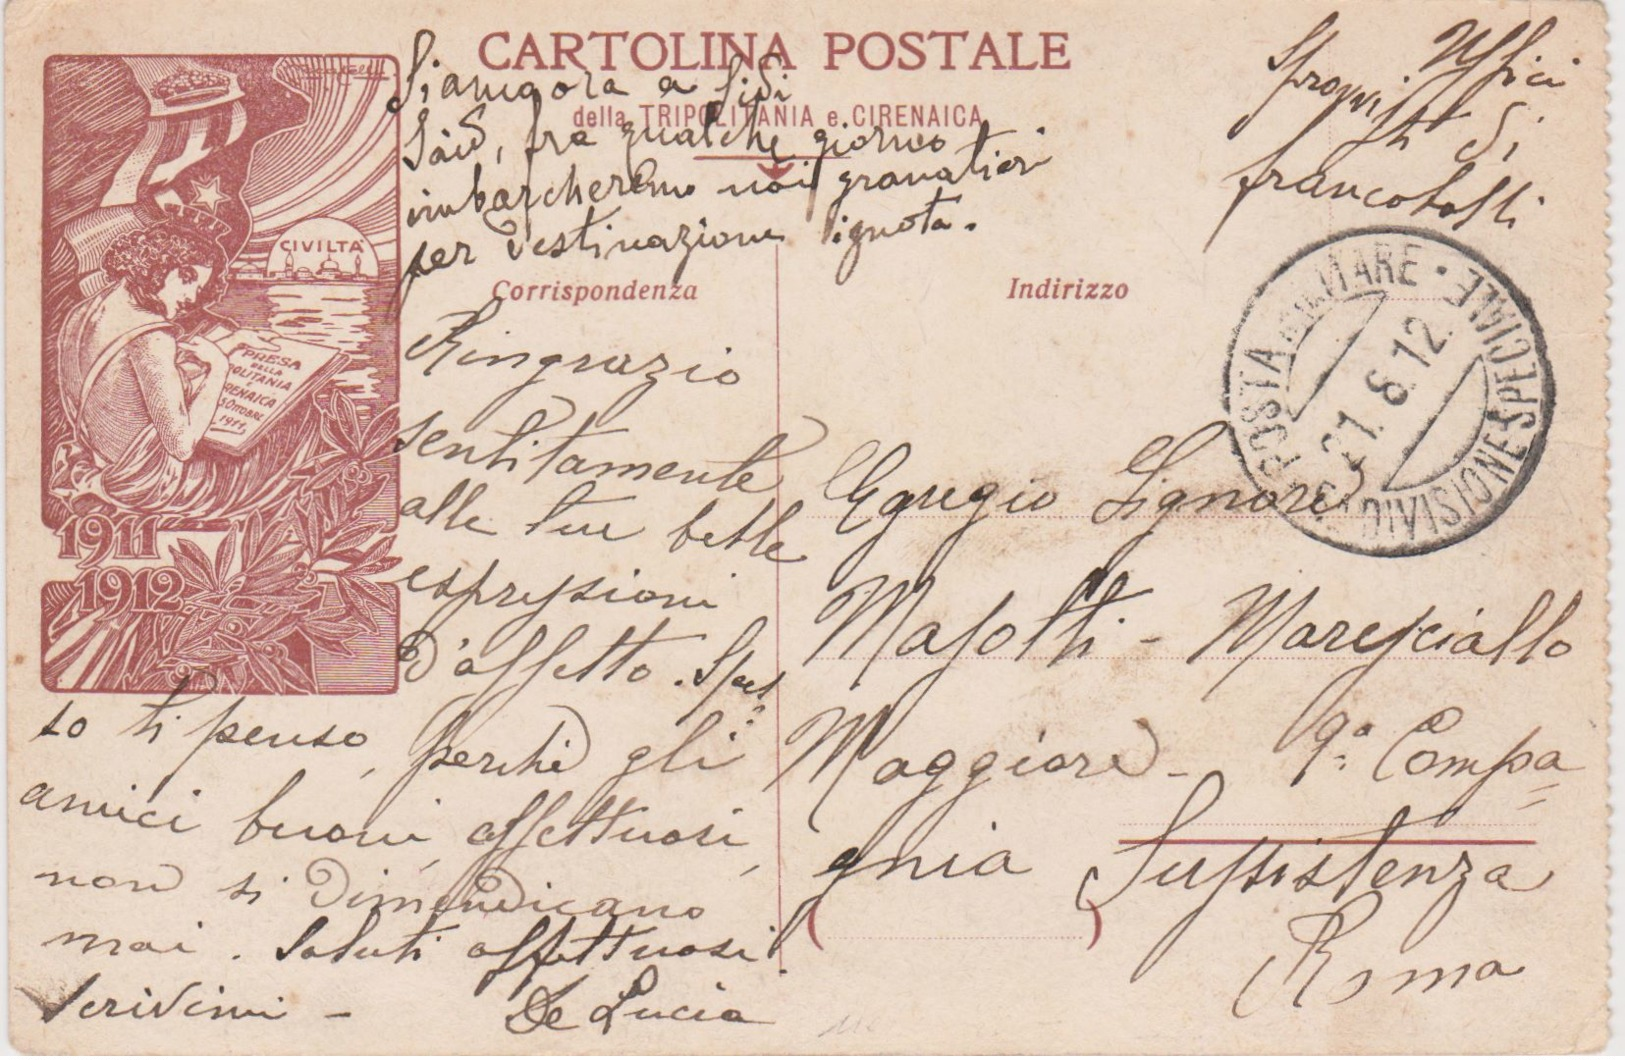 CARTOLINA POSTALE
della TRIPOLITANIA e CIRENAICA
Siamo ora a Sidi
Said, fra qualche giorno
imbarcheremo noi granatieri
per destinazione ignota.
Uffici
sprovvisti di
francobolli
CIVILTÀ
PRESA
DELLA
POLITANIA
E
RENAICA
5 OTTOBRE
1911
1911
1912
Corrispondenza
Indirizzo
POSTA MILITARE • DIVISIONE SPECIALE
21. 8. 12.
Ringrazio
sentitamente
alle tue belle
espressioni
d'affetto. Spes
so ti penso, perchè gli
amici buoni, affettuosi,
non si dimendicano
mai. Saluti affettuosi.
Scrivimi - De Lucia
Egregio Signore
Masotti - Maresciallo
Maggiore - 9ª Compa=
gnia Sussistenza
Roma